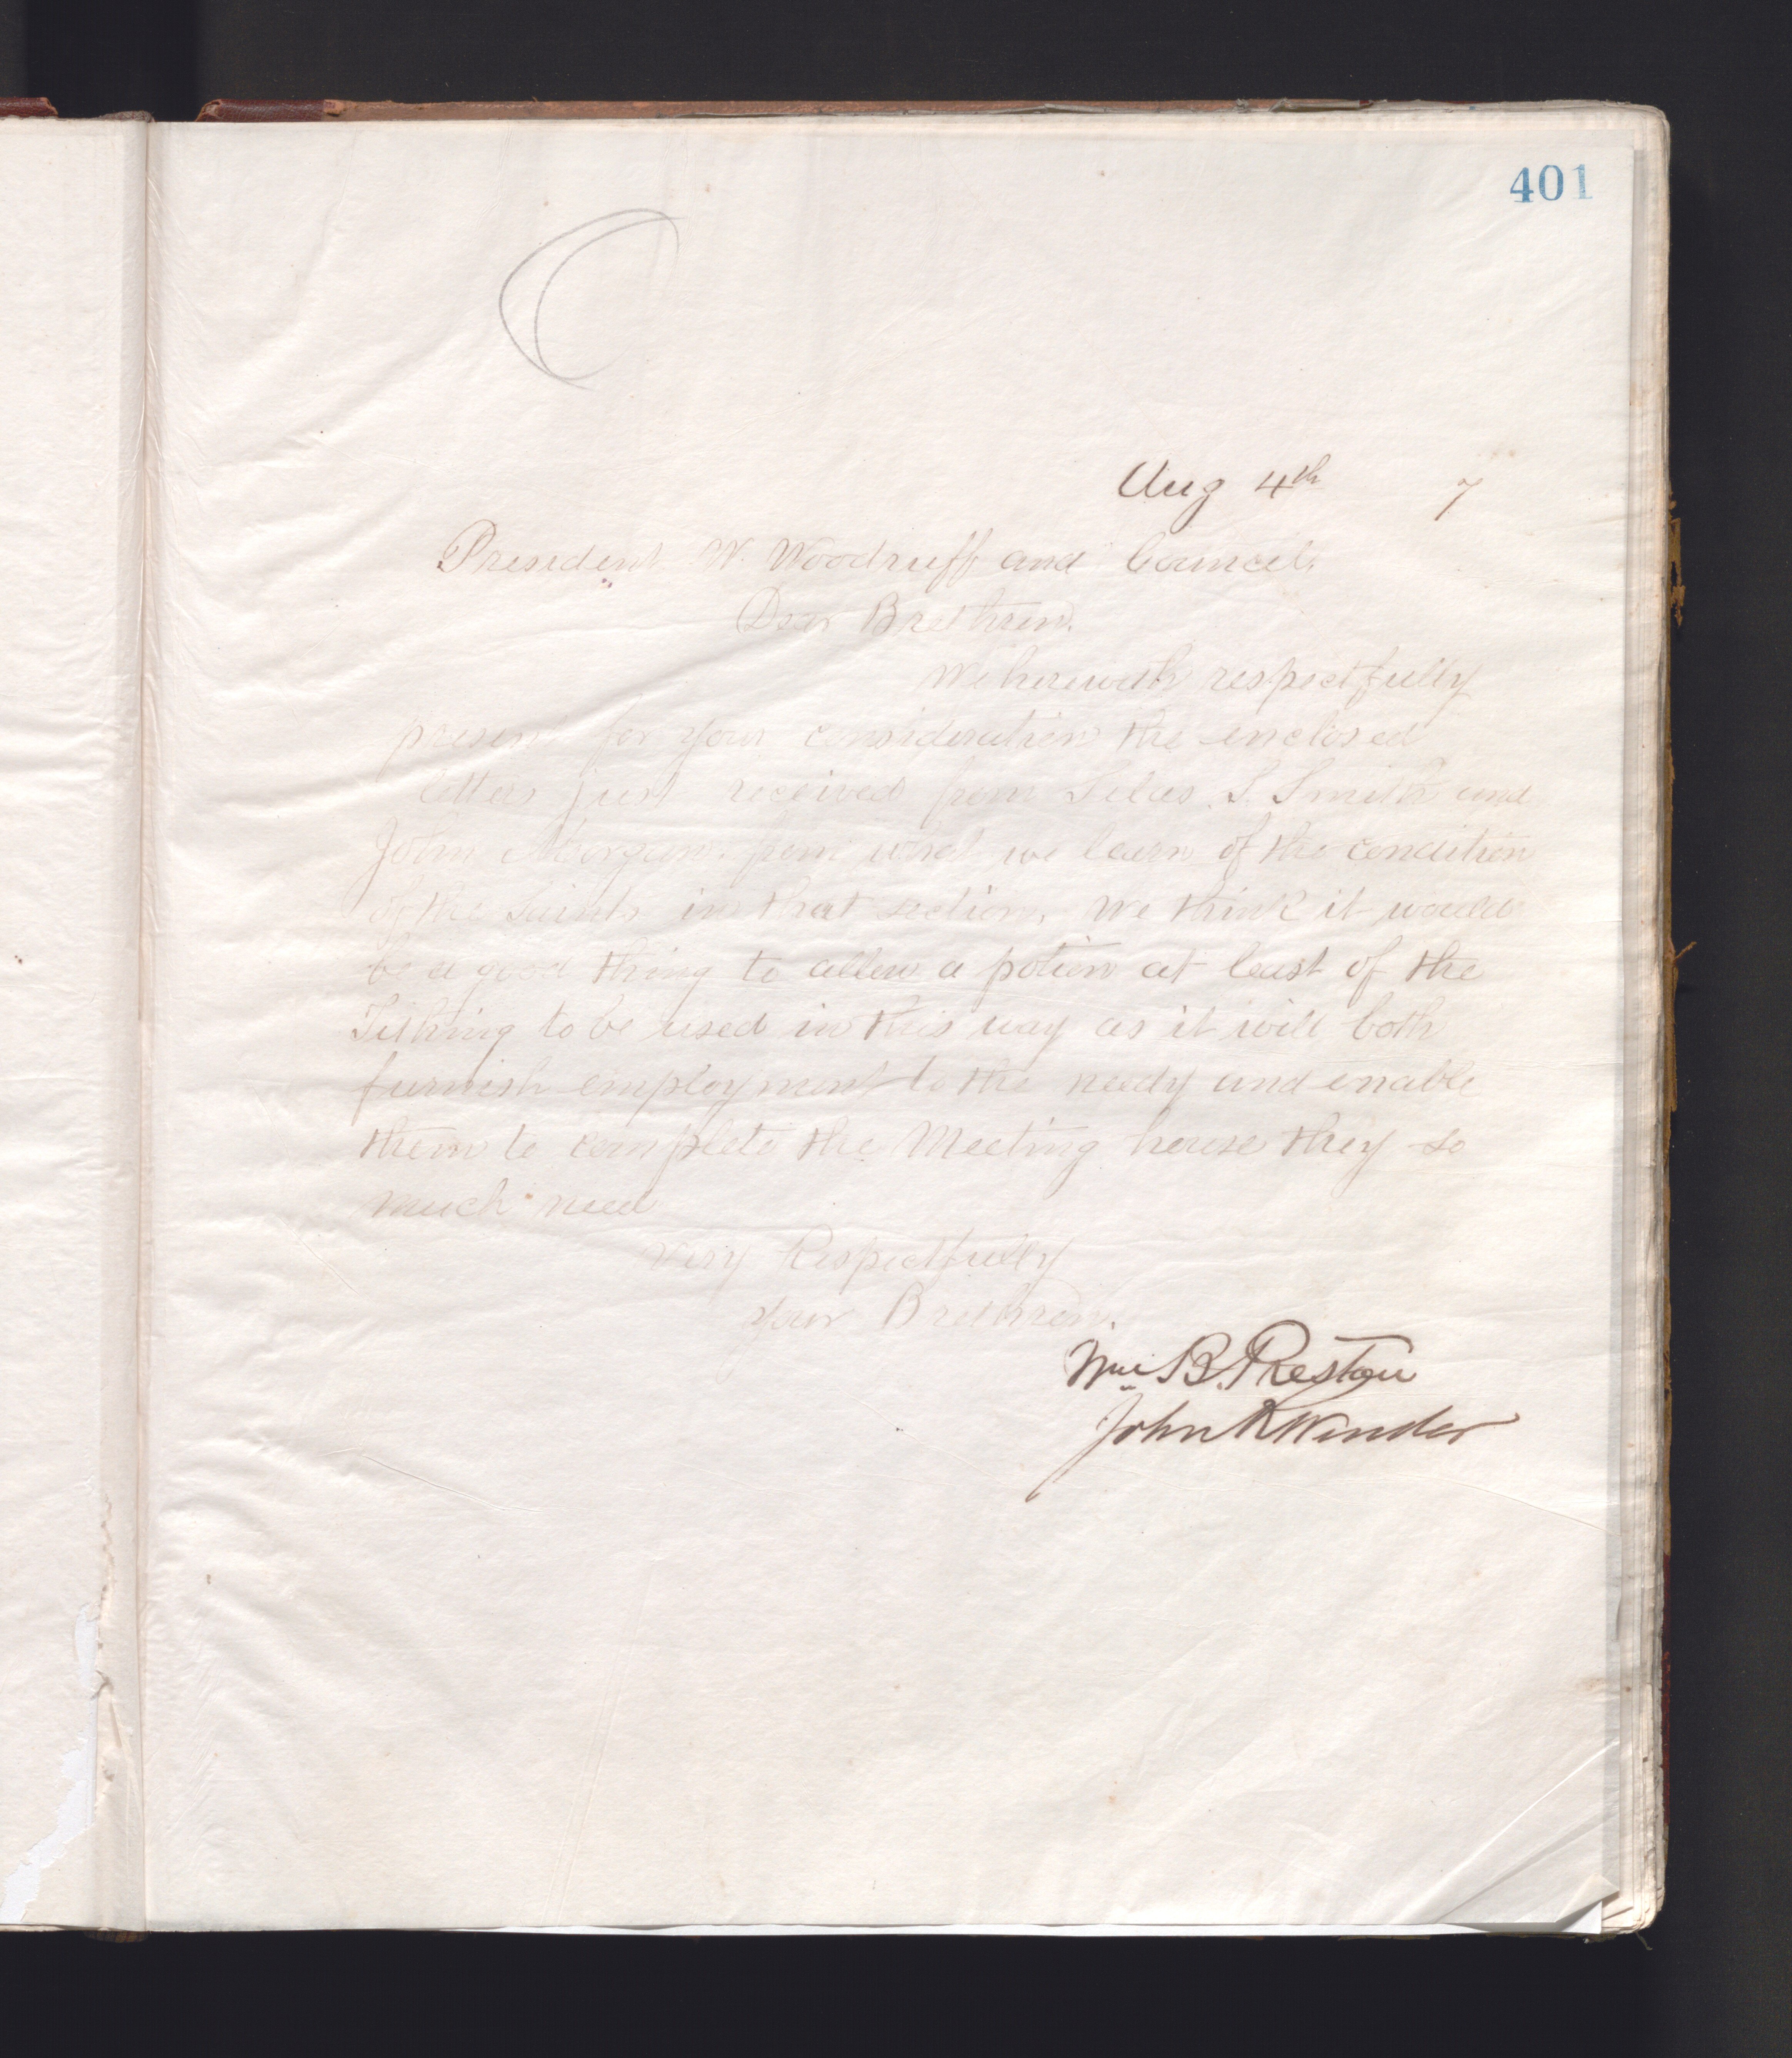 401
Aug 4th 7
President W. Woodruff and Council.
Dear Brethren.
We herewith respectfully
present for your consideration the enclosed
letters just received from Silas S. Smith and
John Morgan. from what we learn of the condition
of the Saints in that section, We think it would
be a good thing to allow a potion at least of the
Tithing to be used in this way as it will both
furnish employment to the needy and enable
them to complete the Meeting house they so
much need
Very Respectfully
Your Brethren.
Wm B. Preston
John R Winder